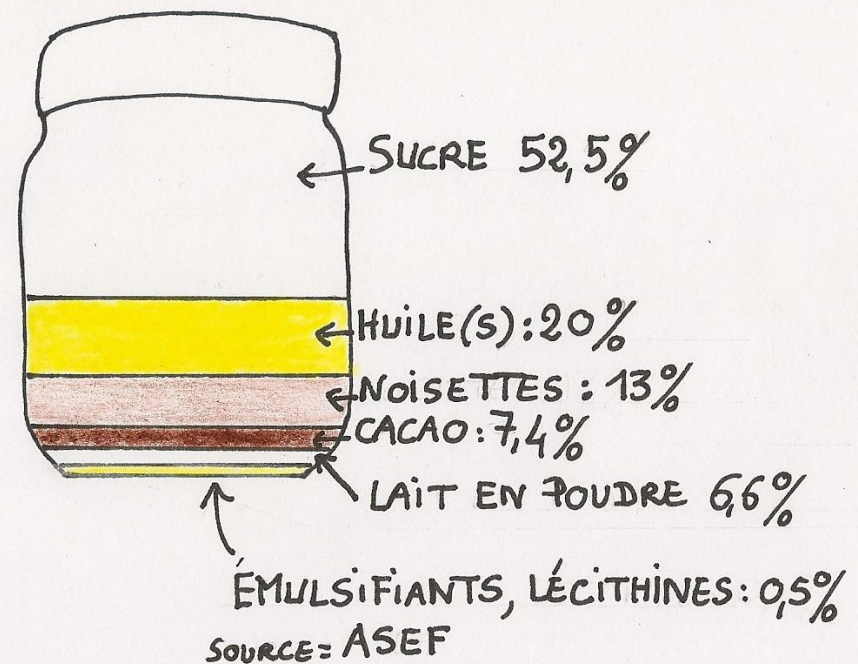 SUCRE 52,5%
HUILE(S): 20%
NOISETTES : 13%
CACAO: 7,4%
LAIT EN POUDRE 6,6%
ÉMULSIFIANTS, LÉCITHINES: 0,5%
SOURCE = ASEF